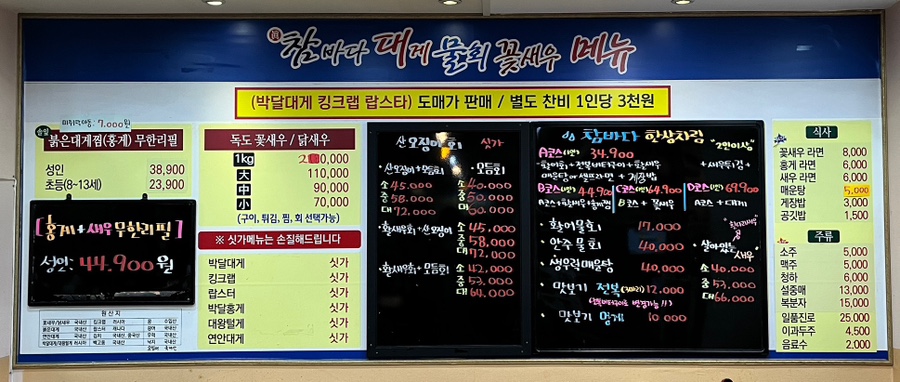 眞 참바다 대게 물회 꽃새우 메뉴
(박달대게 킹크랩 랍스타) 도매가 판매 / 별도 찬비 1인당 3천원
7,000원
손질
붉은대게찜(홍게) 무한리필
성인 38,900
초등(8~13세) 23,900
[홍게+새우 무한리필]
성인: 44,900원
원산지
독도 꽃새우 / 닭새우
1kg 200,000
大 110,000
中 90,000
小 70,000
(구이, 튀김, 찜, 회 선택가능)
※ 싯가메뉴는 손질해드립니다
박달대게 싯가
킹크랩 싯가
랍스터 싯가
박달홍게 싯가
대왕털게 싯가
연안대게 싯가
산 오징어회 싯가
·산오징어+모듬회 ·모듬회
소 45,000 소 40,000
중 58,000 중 50,000
대 72,000 대 60,000
·황새우회+산오징어
소 45,000
중 58,000
대 72,000
·황새우회+모듬회
소 42,000
중 53,000
대 64,000
참바다 한상차림 "2인이상"
A코스(1인) 34,900
황어회+전복버터구이+황새우 +새우튀김+
매운탕 or 생프라면 + 게장밥
B코스(1인) 44,900 C코스(1인) 64,900 D코스(1인) 69,900
A코스+황새우+홍게찜 B코스 + 꽃새우 A코스 + 대게
·황어물회 17,000
·안주 물회 40,000
·생우럭매운탕 40,000
·맛보기 전복(3마리) 12,000
(전복버터구이로 변경가능!!)
·맛보기 멍게 10,000
·살아있는 새우
소 40,000
중 53,000
대 66,000
식사
꽃새우 라면 8,000
홍게 라면 6,000
새우 라면 6,000
매운탕 5,000
게장밥 3,000
공깃밥 1,500
주류
소주 5,000
맥주 5,000
청하 6,000
설중매 13,000
복분자 15,000
일품진로 25,000
이과두주 4,500
음료수 2,000